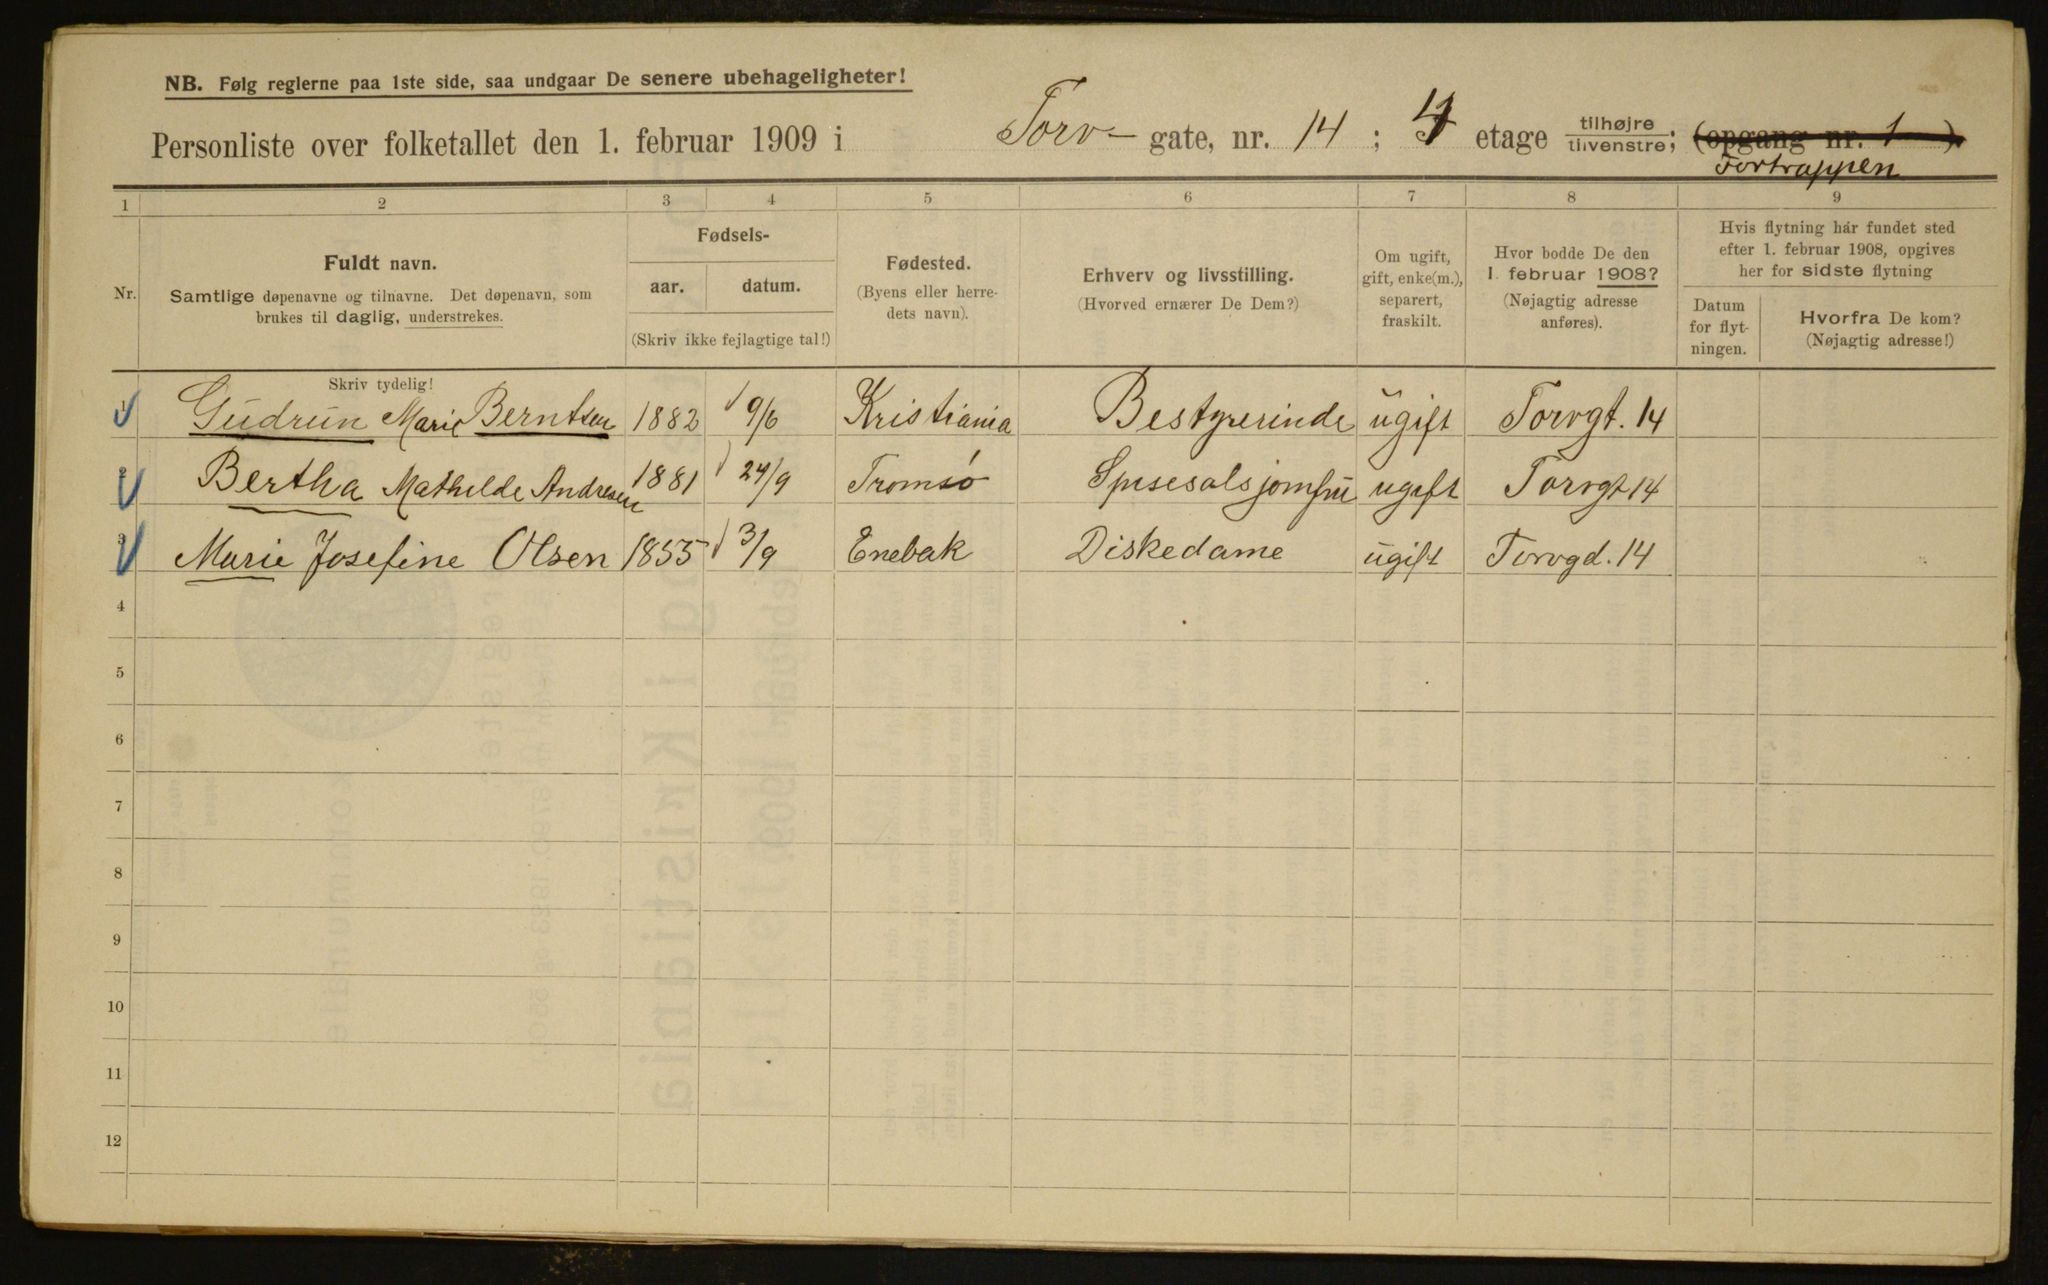 NB. Følg reglerne paa 1ste side, saa undgaar De senere ubehageligheter!
Personliste over folketallet den 1. februar 1909 i Torv- gate, nr. 14 ; 4 etage tilhøjre tilvenstre; (opgang nr. 1 )
Fortrappen
1 2 3 4 5 6 7 8 9
Nr.
Fuldt navn.
Samtlige døpenavne og tilnavne. Det døpenavn, som
brukes til daglig, understrekes.
Fødsels-
aar. datum.
(Skriv ikke fejlagtige tal!)
Fødested.
(Byens eller herre-
dets navn).
Erhverv og livsstilling.
(Hvorved ernærer De Dem?)
Om ugift,
gift, enke(m.),
separert,
fraskilt.
Hvor bodde De den
1. februar 1908?
(Nøjagtig adresse
anføres).
Hvis flytning har fundet sted
efter 1. februar 1908, opgives
her for sidste flytning
Datum
for flyt-
ningen.
Hvorfra De kom?
(Nøjagtig adresse!)
Skriv tydelig!
1 Gudrun Marie Berntsen 1882 9/6 Kristiania Bestyrerinde ugift Torvgt. 14
2 Bertha Mathilde Andresen 1881 24/9 Tromsø Spisesalsjomfru ugift Torvgt 14
3 Marie Josefine Olsen 1855 3/9 Enebak Diskedame ugift Torvgd. 14
4
5
6
7
8
9
10
11
12